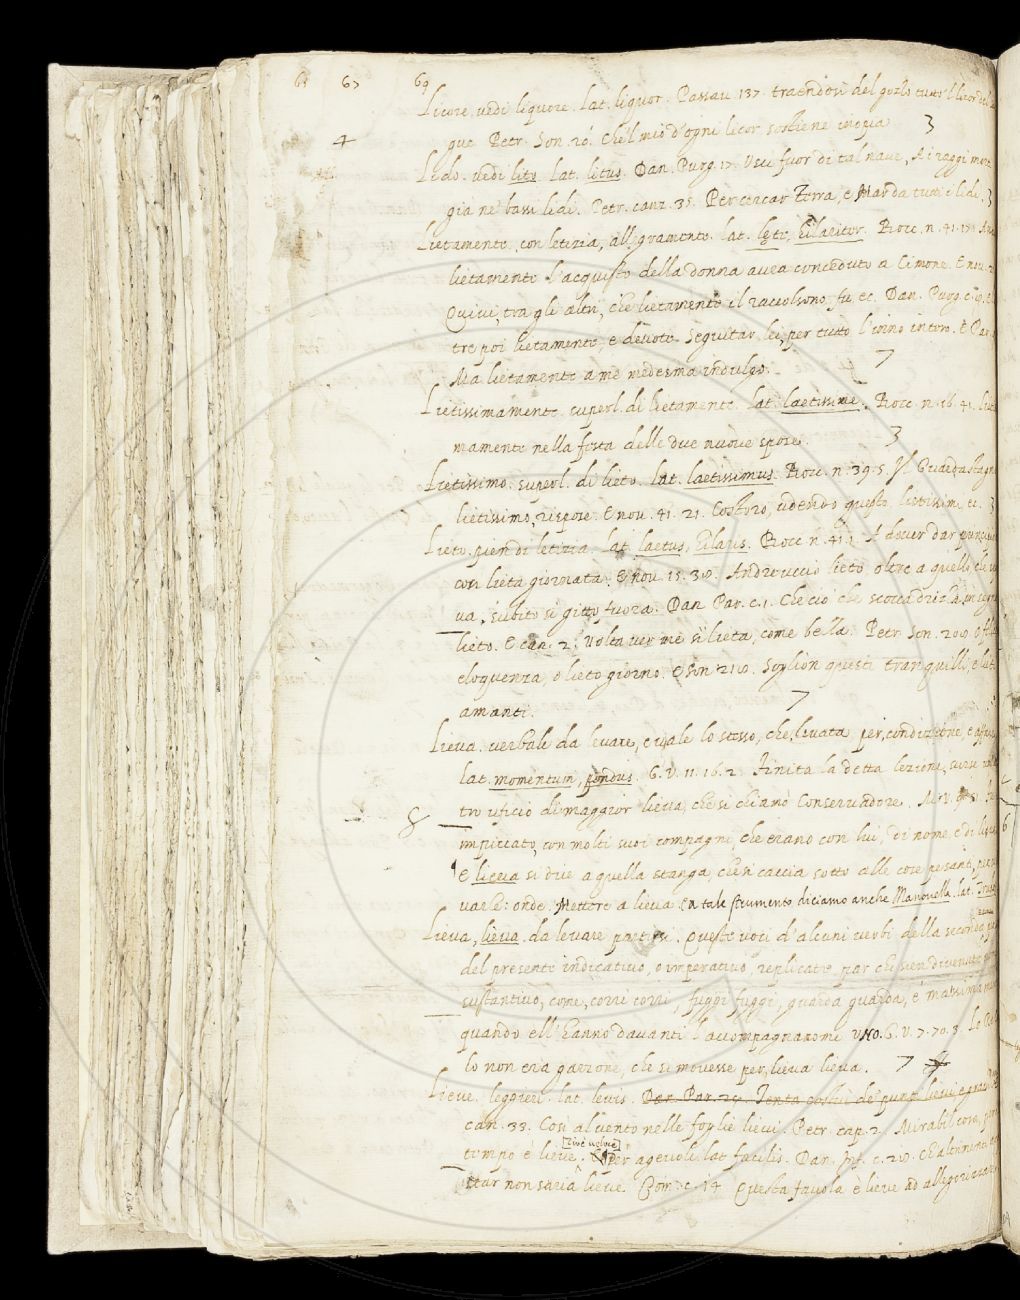 67 69
Licore. vedi liquore. Lat. liquor. Passau. 137. traendosi del gozo tutto 'l licor del
que. Petr. Son. 20. Che'l mio d'ogni licor sostiene inopia 3
4
Lido. vedi lito. Lat. litus. Dan. Purg. 17. Usu fuor di tal naue, Ai raggi morti
gia ne' bassi lidi. Petr. canz. 35. Per cercar Terra, e Mar da tutti i lidi. 3
Lietamente, con letizia, allegramente. lat. lęte, hilariter. Bocc. n. 41. 15.
lietamente l'acquisto della donna auea conceduto a Cimone. E nou.
Quiui, tra gli altri, che lietamente il raccolsono, fu ec. Dan. Purg. c.
tre poi lietamente, e deuote Seguitar lei, per tutto l'inno intero. E Par.
Ma lietamente a me medesma indulgo. 7
Lietissimamente. superl. di lietamente. Lat. laetissime. Bocc. n. 16. 41.
mamente nella festa delle due nuoue spose. 3
Lietissimo. superl. di lieto. Lat. laetissimus. Bocc. n. 39. 5. Il Guardastagno
lietissimo, rispose. E nou. 41. 21. Costoro, udendo questo, lietissimi ec. 3
Lieto. pien di letizia. Lat. laetus, hilaris. Bocc. n. 41. 1. A douer dar principio
con lieta giornata. E nou. 15. 30. Andreuccio lieto oltre a quello che
ua, subito si gittò fuora. Dan. Par. c. 1. Che ciò che scocca drizza in segno
lieto. E can. 2. Volta uer me sì lieta, come bella. Petr. Son. 200. O
eloquenza, o lieto giorno. E Son. 210. Soglion questi tranquilli, e lieti
amanti. 7
Lieua. uerbale da leuare, e uale lo stesso, che, leuata per, condizione, e
Lat. momentum, pondus. G. V. 11. 16. 2. Finita la detta lezione, surse
tro uficio di maggior lieua, che si chiamò Conseruadore. M. V.
impiccato, con molti suoi compagni, che erano con lui, di nome, e di lieua
E lieua si dice a quella stanga, che si caccia sotto alle cose pesanti, per
uarle: onde. Mettere a lieua. E a tale strumento diciamo anche Manouella. lat.
Lieua, lieua. da leuare partirsi. Queste uoci d'alcuni uerbi della seconda
del presente indicatiuo, o imperatiuo, replicate, par che sien diuenute
sustantiuo, come, corri corri, fuggi fuggi, guarda guarda, e massimamente
quando ell'hanno dauanti l'accompagnanome UNO. G. V. 7. 70. 3. Lo
lo non era garzone, che si mouesse per, lieua lieua. 7
Lieue. leggieri. lat. leuis. Dan. Par. 28. Tenta costui de' punti lieui, e graui
can. 33. Così al uento nelle foglie lieui. Petr. cap. 2. Mirabil cosa,
tempo è lieue. [cioè ueloce] Per ageuole. lat. facilis. Dan. Inf. c. 20. Che
uitar non saria lieue. Com. c. 14. Questa fauola è lieue ad allegorizzare